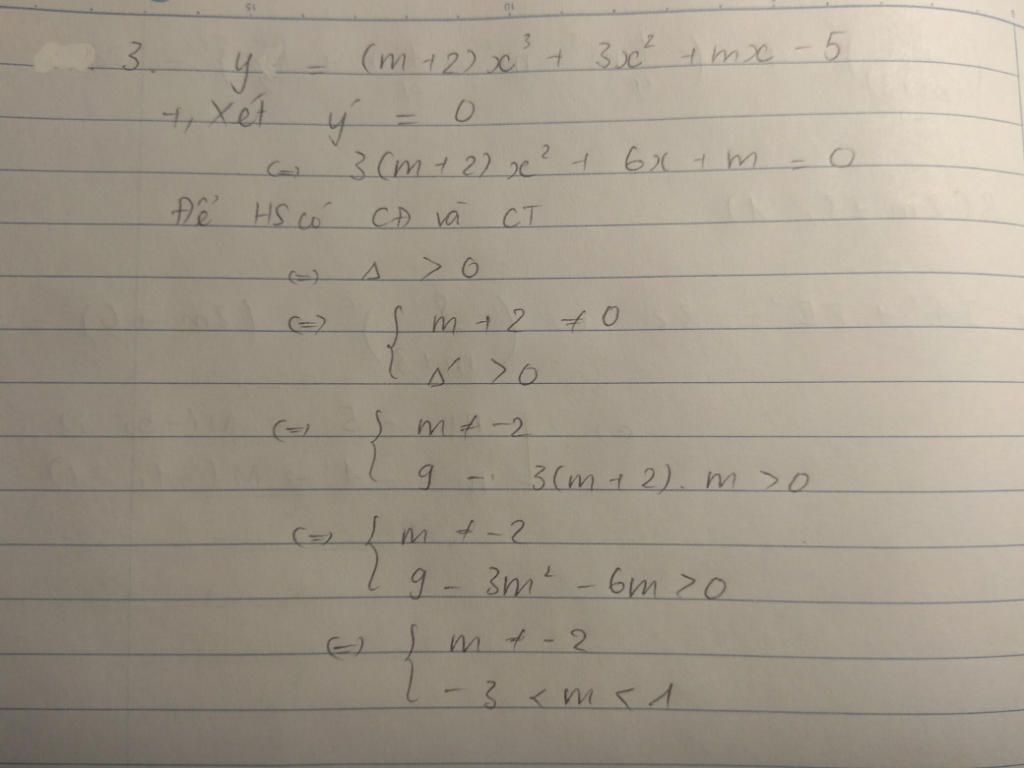 3. y = (m+2)x³ + 3x² + mx - 5
+, Xét y' = 0
(=) 3(m+2)x² + 6x + m = 0
Để HS có CĐ và CT
(=) Δ > 0
(=) { m + 2 ≠ 0
Δ' > 0
(=) { m ≠ -2
9 - 3(m+2). m > 0
(=) { m ≠ -2
9 - 3m² - 6m > 0
(=) { m ≠ -2
-3 < m < 1